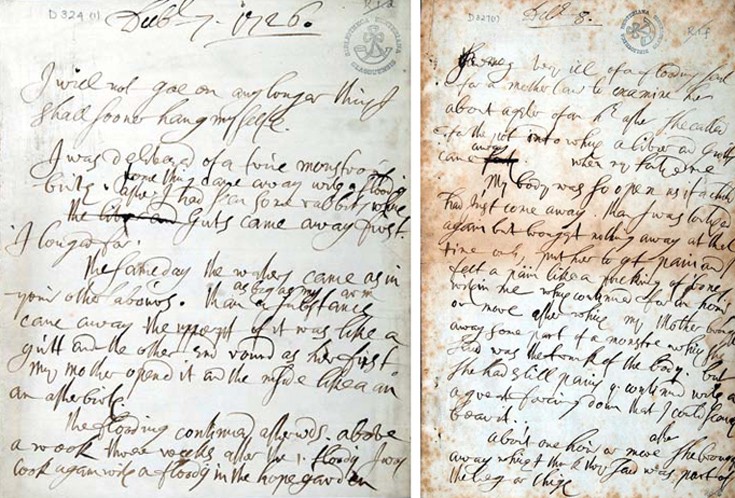 D324 (1)
Decbr 7. 1726.
BIBLIOTHECA HUNTERIANA GLASGUENSIS
I will not goe on any longer thus I
shall sooner hang myselfe.
I was delivered of a true monstros
birth. some thing came away with a flooding
after I had seen some rabbits, while
the Guts came away first.
I longed for.
the same day the waters came as in
your other labours. then a substance
as big as my arm
came away the uppert of it was like a
gutt and the other end round as her first
My mother opend it and the inside like a an
an afterbirth.
the flooding continued afterwds. above
a week three weeks after the 1. floody I was
took again with a floody in the hope garden
D327(1)
Decbr 8.
very ill of a flooding sent
for a mother law to examine her
about a qter of an hr after she called
for the pot into which a liber and Gutts
away
came when my fathr came
My body was so open as if a child
had just come away. than I was
again but brought nothing away at that
time only put her to got pain and I
felt a pain like a pricking of bones
within me which continued for an hour
or more after which my Mother brought
away some part of a monstre which she
said was the trunk of the body. but
she had still pains & continued with a
a great forcing down that I could scarce
bear it.
after
about one hour or more she brought
away which they said was part of
the leg or thigh